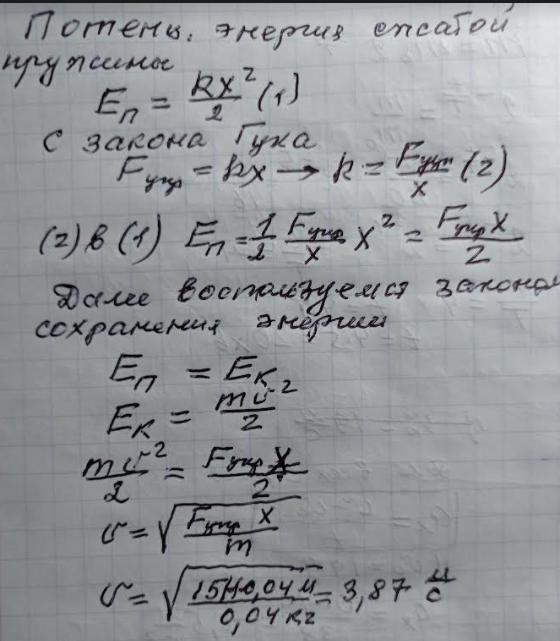 Потенц. энергия сжатой
пружины
Eп = kx²/2 (1)
С закона Гука
Fупр = kx → k = Fупр/x (2)
(2) в (1) Eп = 1/2 Fупр/x x² = Fупр x/2
Далее воспользуемся законом
сохранения энергии
Eп = Eк
Eк = mv²/2
mv²/2 = Fупр x/2
v = √(Fупр x/m)
v = √(15Н·0,04м/0,04кг) = 3,87 м/с